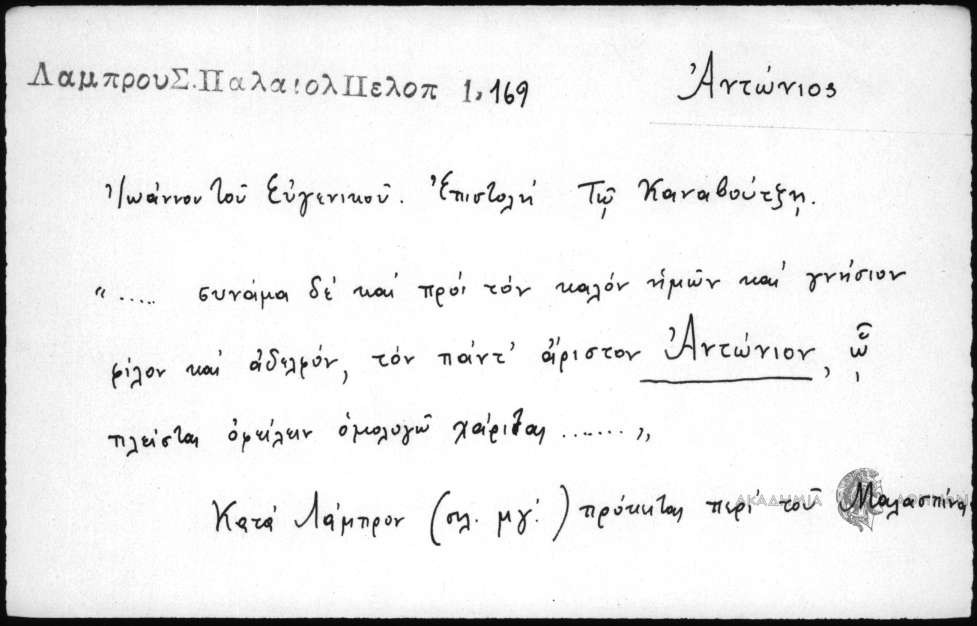 ΛαμπρουΣ.ΠαλαιολΠελοπ 1,169 Ἀντώνιος
Ἰωάννου τοῦ Εὐγενικοῦ. Ἐπιστολή Τῷ Καναβούτζῃ.
"..... συνάμα δέ καί πρός τόν καλόν ἡμῶν καί γνήσιον
φίλον καί ἀδελφόν, τόν πάντ' ἄριστον Ἀντώνιον, ᾧ
πλείστας ὀφείλειν ὁμολογῶ χάριτας ......."
Κατά Λάμπρον (σελ. μγ΄.) πρόκειται περί τοῦ Μαλασπίνα
ΑΚΑΔΗΜΙΑ ΑΘΗΝΩΝ